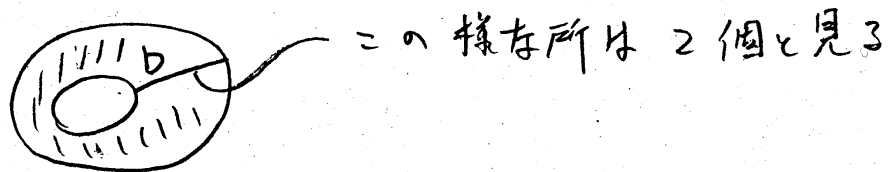 この様な所は2個と見る
b